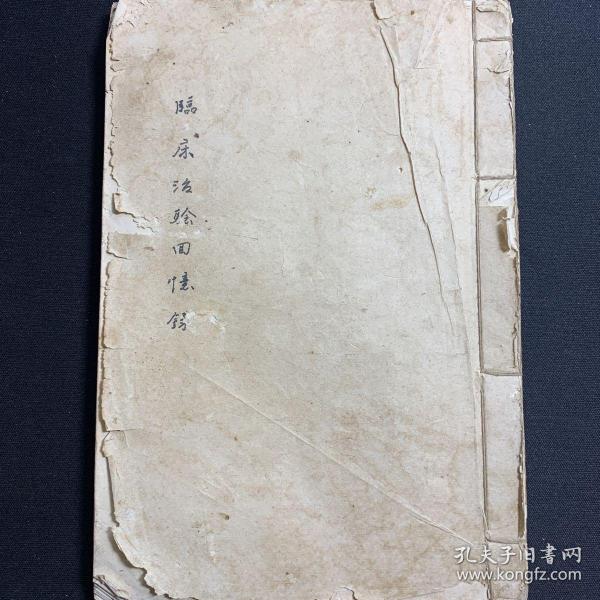 臨床治驗回憶錄
孔夫子旧書网
www.kongfz.com